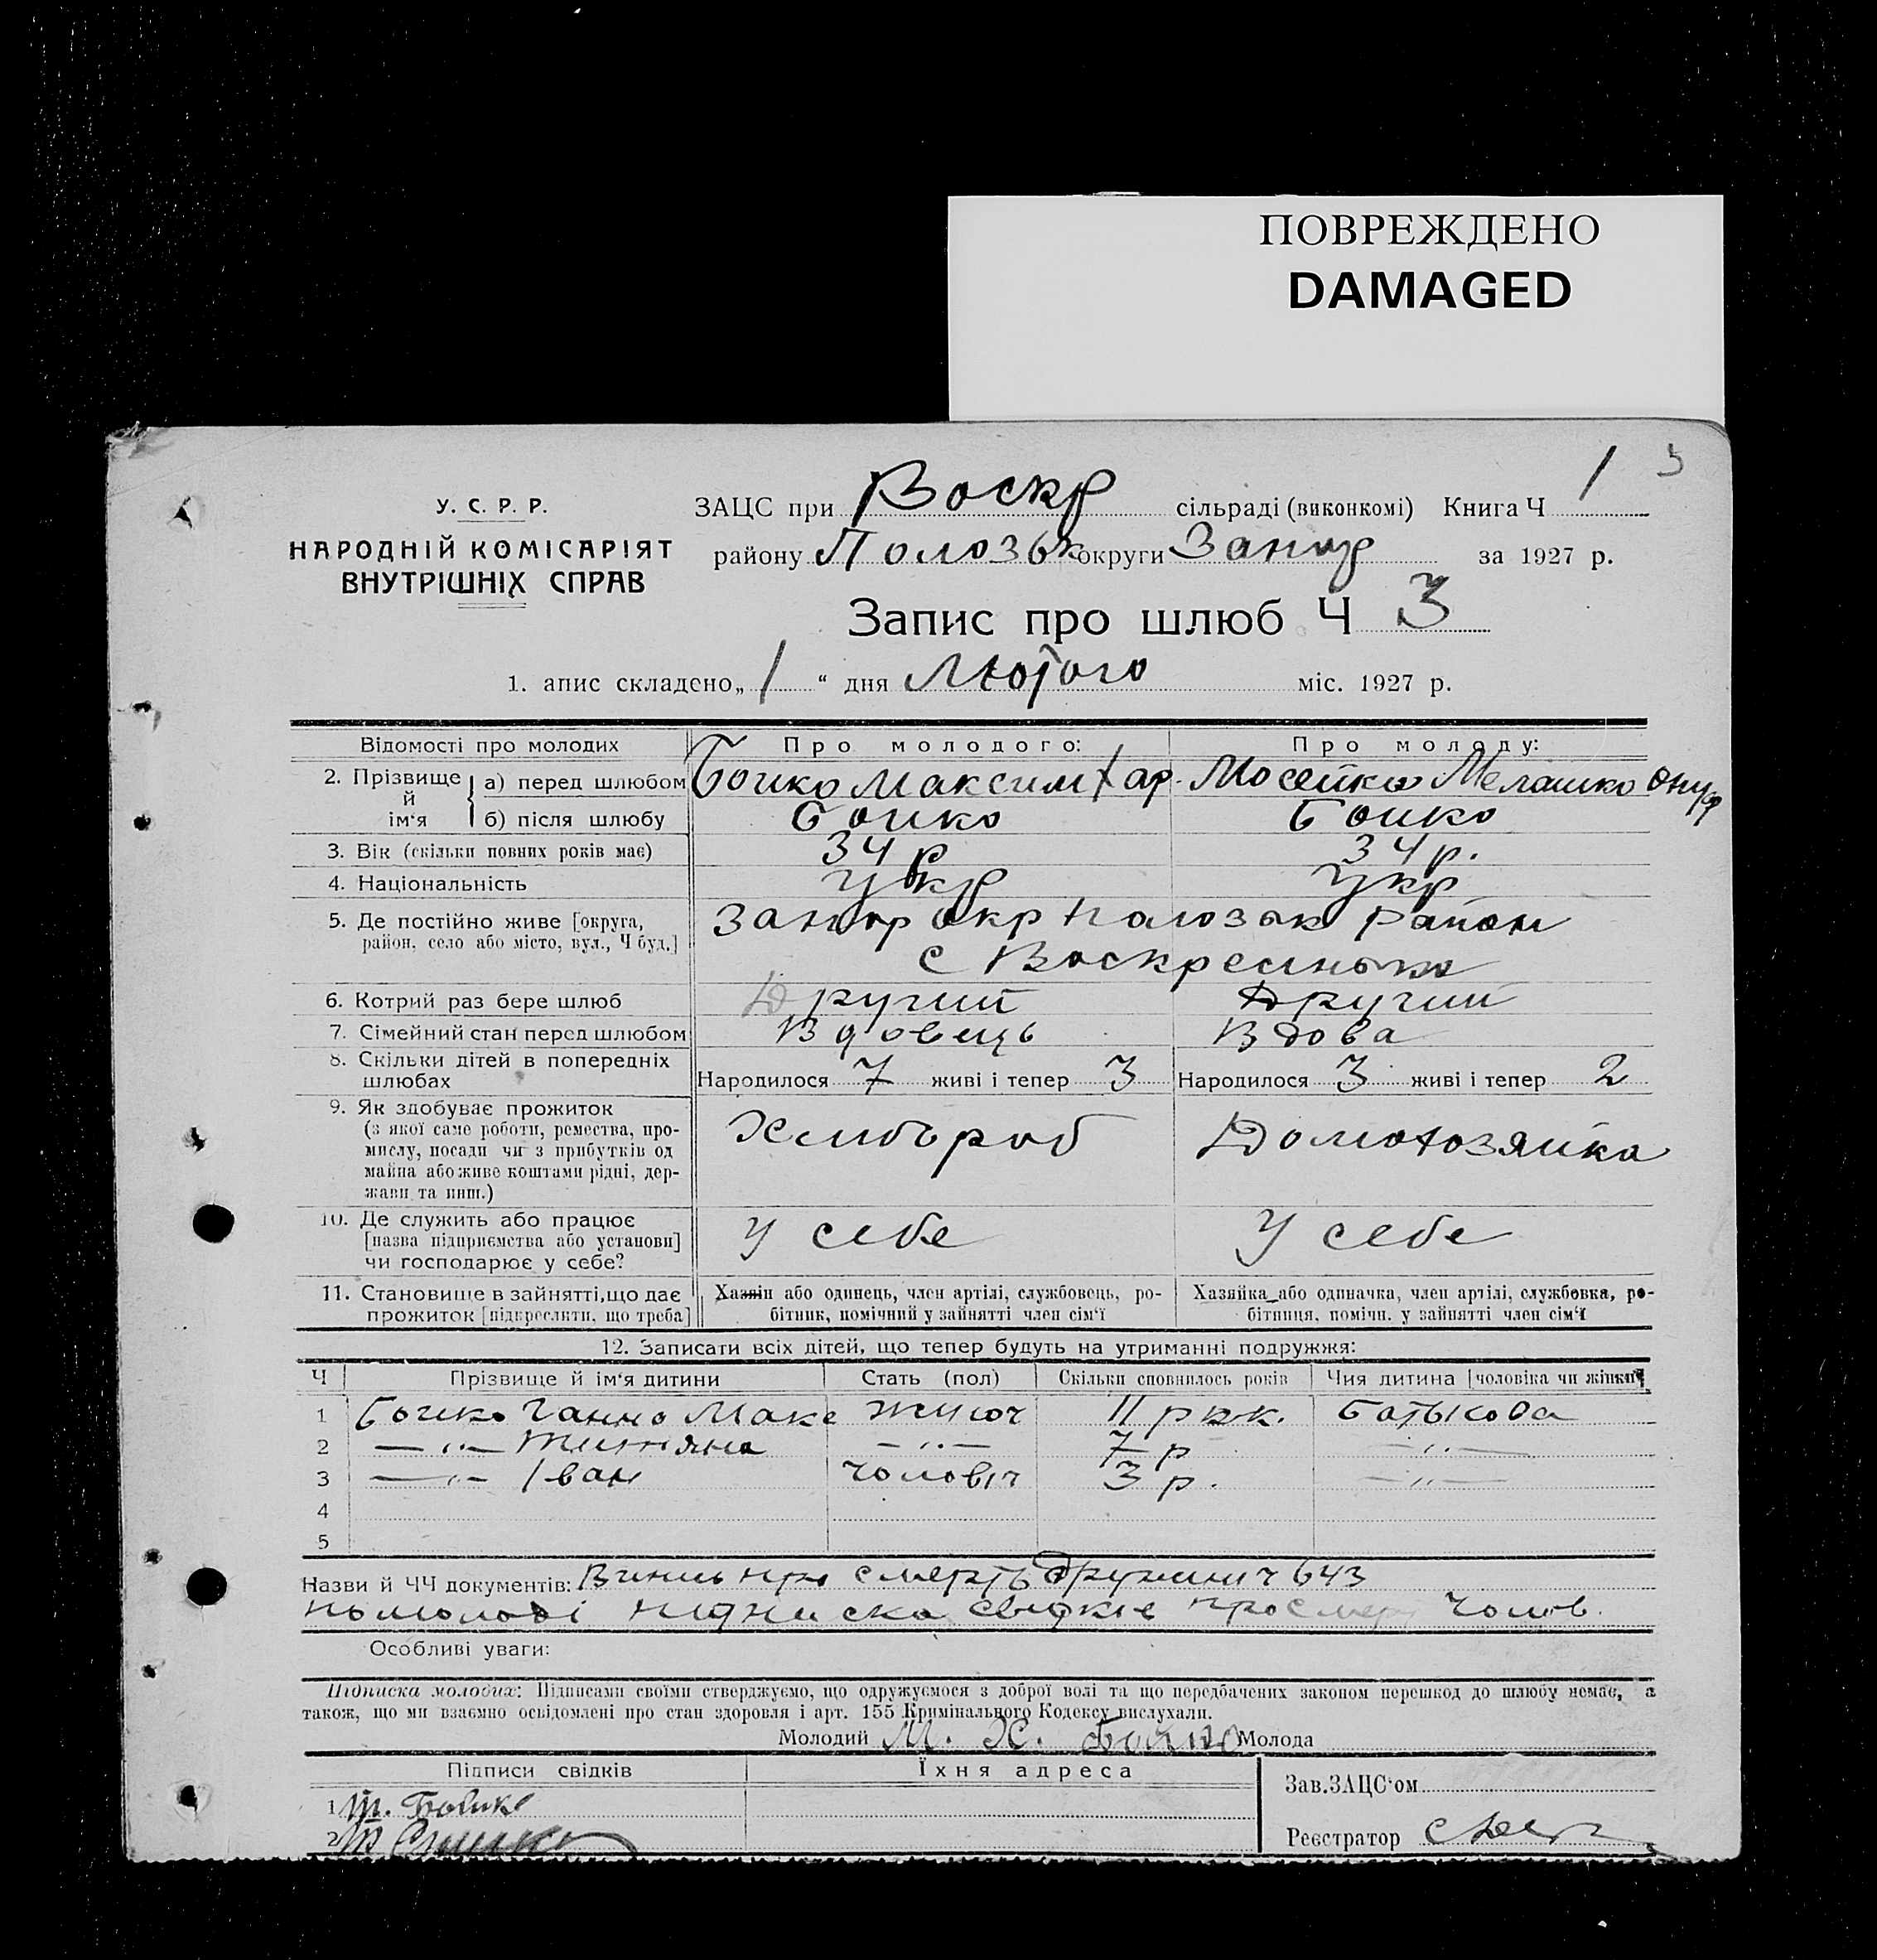 ПОВРЕЖДЕНО
DAMAGED
У. С. Р. Р.
НАРОДНІЙ КОМІСАРІЯТ
ВНУТРІШНІХ СПРАВ
ЗАЦС при Воскр сільраді (виконкомі) Книга Ч 1
району Полозьк округи Запор за 1927 р.
Запис про шлюб Ч 3
1. апис складено „ 1 “ дня Лютого міс. 1927 р.
Відомості про молодих Про молодого: Про молоду:
2. Прізвище й ім‘я а) перед шлюбом Бойко Максим Хар. Мосейко Мелашко Онуф
б) після шлюбу Бойко Бойко
3. Вік (скільки повних років має) 34 р 34 р.
4. Національність Укр Укр
5. Де постійно живе [округа, район, село або місто, вул., Ч буд.] Запор окр Полозьк район
с Воскресинька
6. Котрий раз бере шлюб Другий Другий
7. Сімейний стан перед шлюбом Вдовець Вдова
8. Скільки дітей в попередніх шлюбах Народилося 7 живі і тепер 3 Народилося 3 живі і тепер 2
9. Як здобуває прожиток
(з якої саме роботи, ремества, про-
мислу, посади чи з прибутків од
майна або живе коштами рідні, дер-
жави та инш.)
Хлибороб Домохозяйка
10. Де служить або працює
[назва підприємства або установи]
чи господарює у себе?
У себе У себе
11. Становище в зайнятті, що дає
прожиток [підкреслити, що треба]
Хазяїн або одинець, член артілі, службовець, ро-
бітник, помічний у зайнятті член сім‘ї
Хазяйка або одиначка, член артілі, службовка, ро-
бітниця, помічн. у зайнятті член сім‘ї
12. Записати всіх дітей, що тепер будуть на утриманні подружжя:
Ч Прізвище й ім‘я дитини Стать (пол) Скільки сповнилось років Чия дитина [чоловіка чи жінки]
1 Бойко Ганна Макс жиноч 11 рок. Батькова
2 — „ — — „ — 7 р — „ —
3 — „ — Іван чоловіч 3 р. — „ —
4
5
Назви й ЧЧ документів: Випись про смерть дружини ч 643
по молоді підписка свидків про смер чолов.
Особливі уваги:
Підписка молодих: Підписами своїми стверджуємо, що одружуємося з доброї волі та що передбачених законом перешкод до шлюбу немає, а
також, що ми взаємно освідомлені про стан здоровля і арт. 155 Кримінального Кодексу вислухали.
Молодий М. Х. Бойко Молода
Підписи свідків Їхня адреса
Зав.ЗАЦС‘ом
1 Т. Бойко
2
Реєстратор